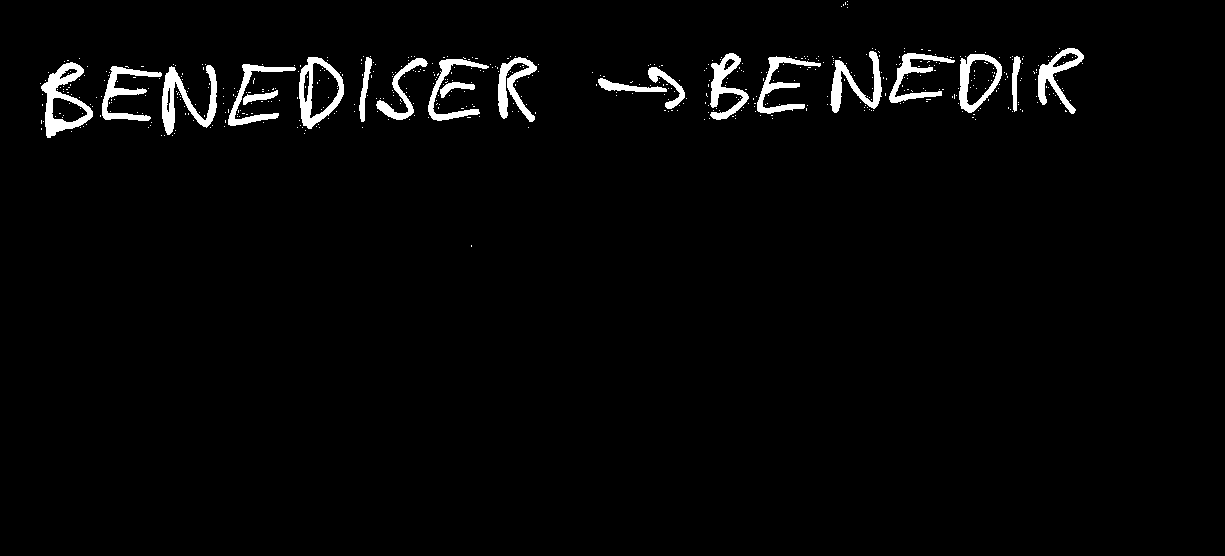 BENEDISER → BENEDIR